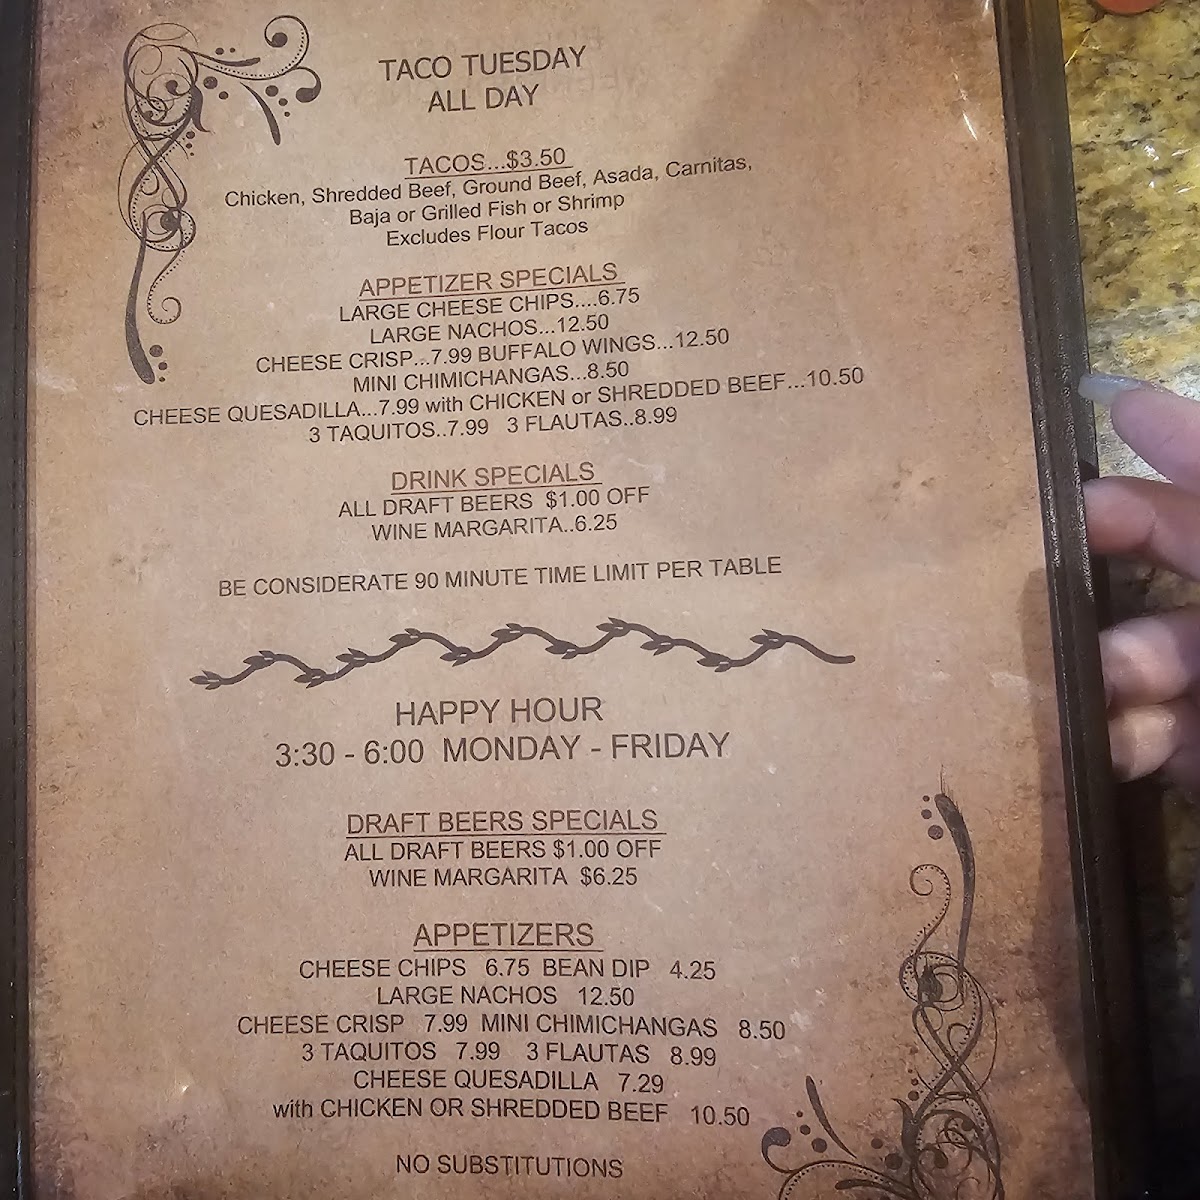 TACO TUESDAY
ALL DAY
TACOS...$3.50
Chicken, Shredded Beef, Ground Beef, Asada, Carnitas,
Baja or Grilled Fish or Shrimp
Excludes Flour Tacos
APPETIZER SPECIALS
LARGE CHEESE CHIPS....6.75
LARGE NACHOS...12.50
CHEESE CRISP...7.99 BUFFALO WINGS...12.50
MINI CHIMICHANGAS...8.50
CHEESE QUESADILLA...7.99 with CHICKEN or SHREDDED BEEF...10.50
3 TAQUITOS..7.99 3 FLAUTAS..8.99
DRINK SPECIALS
ALL DRAFT BEERS $1.00 OFF
WINE MARGARITA..6.25
BE CONSIDERATE 90 MINUTE TIME LIMIT PER TABLE
HAPPY HOUR
3:30 - 6:00 MONDAY - FRIDAY
DRAFT BEERS SPECIALS
ALL DRAFT BEERS $1.00 OFF
WINE MARGARITA $6.25
APPETIZERS
CHEESE CHIPS 6.75 BEAN DIP 4.25
LARGE NACHOS 12.50
CHEESE CRISP 7.99 MINI CHIMICHANGAS 8.50
3 TAQUITOS 7.99 3 FLAUTAS 8.99
CHEESE QUESADILLA 7.29
with CHICKEN OR SHREDDED BEEF 10.50
NO SUBSTITUTIONS